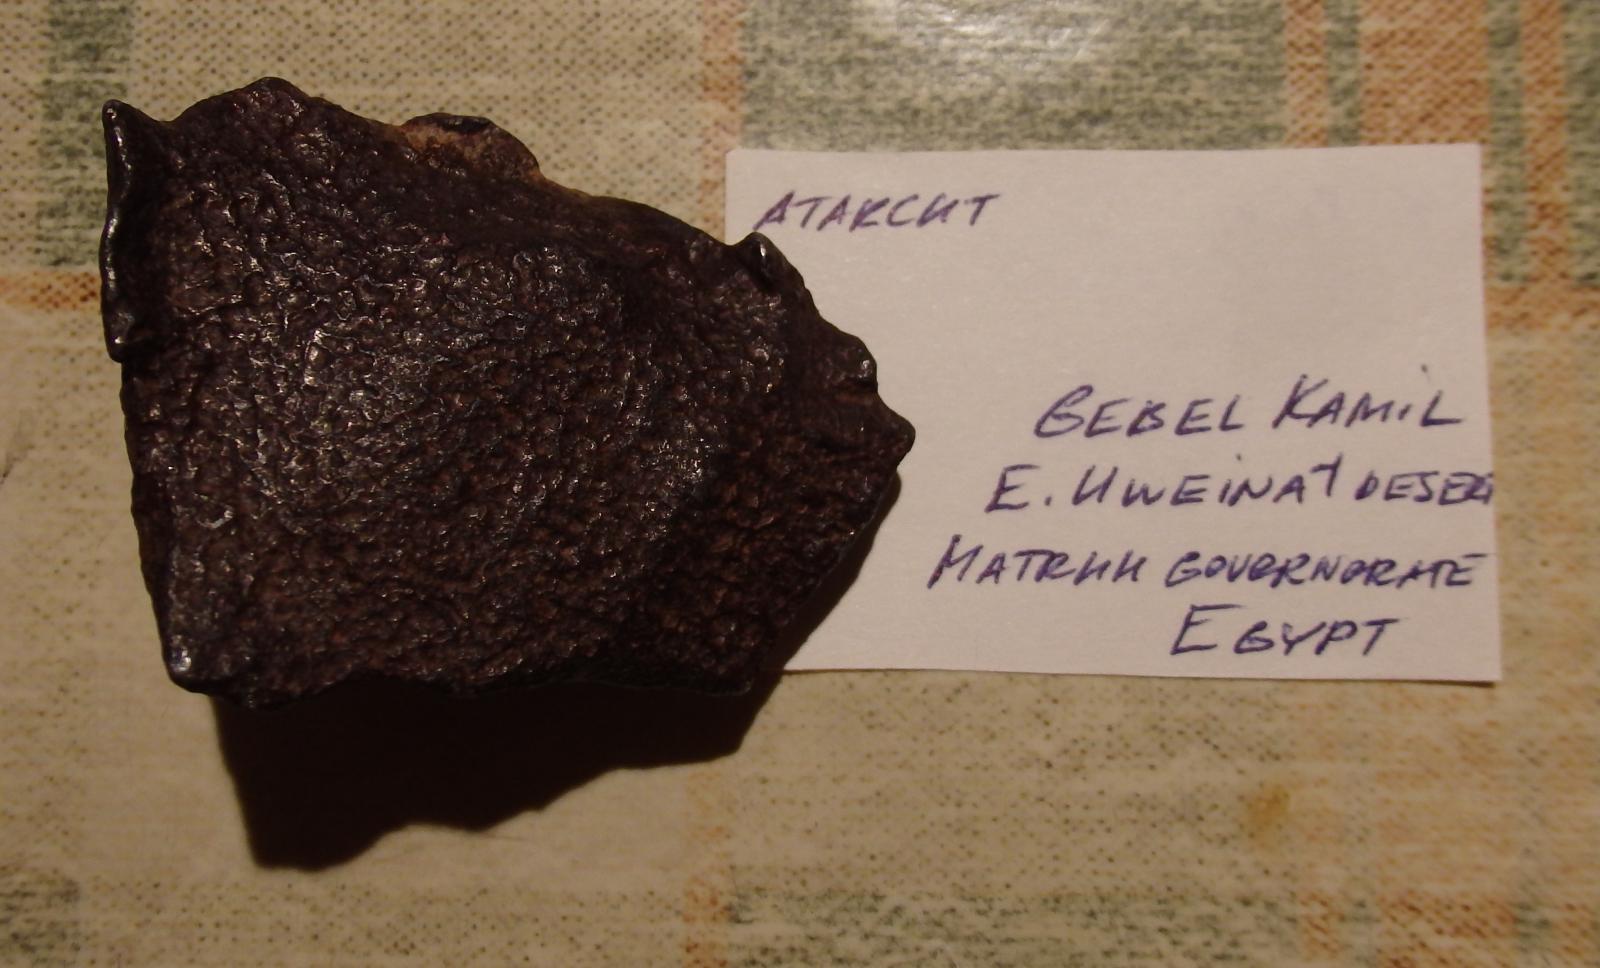 ATARCUT
GEBEL KAMIL
E. UWEINAT DESERT
MATRUH GOVERNORATE
EGYPT